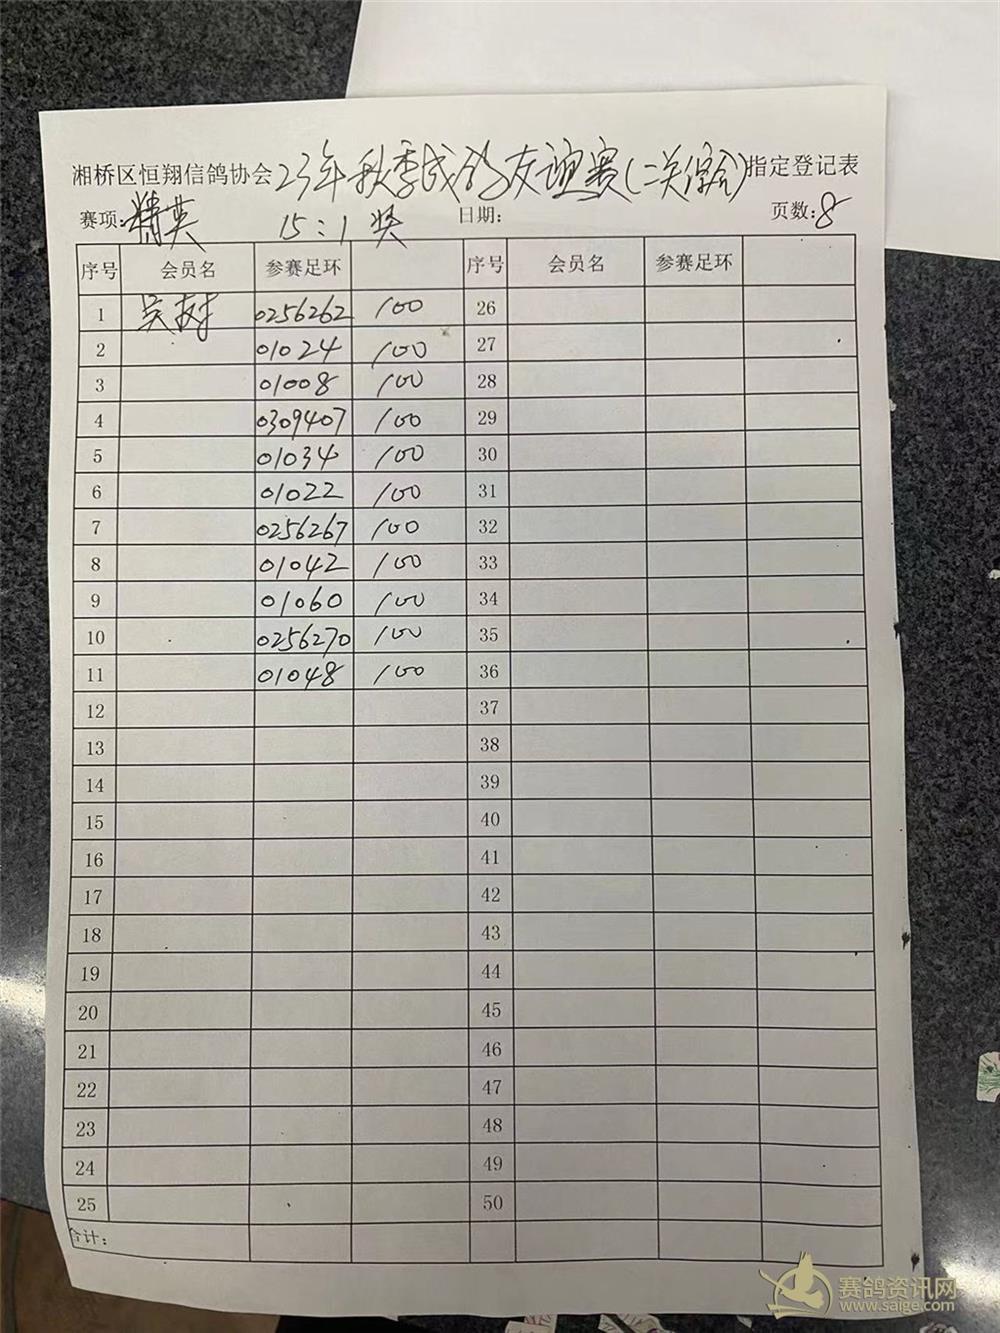 湘桥区恒翔信鸽协会23年秋季成鸽友谊赛(二关综合)指定登记表
赛项:精英 15:1奖 日期: 页数:8
序号 会员名 参赛足环 序号 会员名 参赛足环
1 吴树 0256262 100 26
2 01024 100 27
3 01008 100 28
4 0309407 100 29
5 01034 100 30
6 01022 100 31
7 0256267 100 32
8 01042 100 33
9 01060 100 34
10 0256270 100 35
11 01048 100 36
12 37
13 38
14 39
15 40
16 41
17 42
18 43
19 44
20 45
21 46
22 47
23 48
24 49
25 50
合计:
赛鸽资讯网
www.saige.com